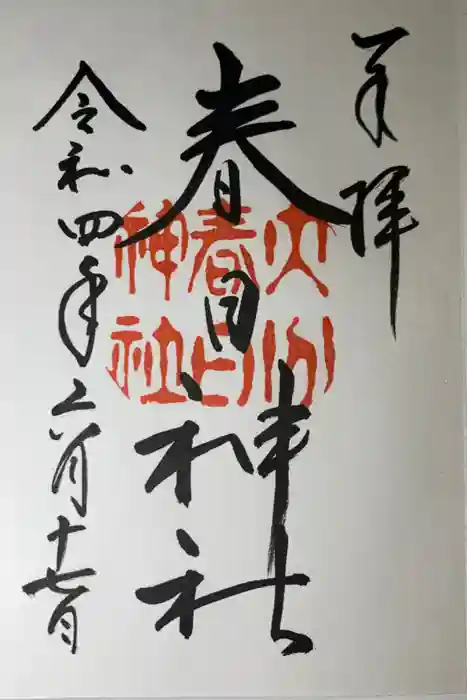 奉拝
春日神社
令和四年六月十七日
春日
神社